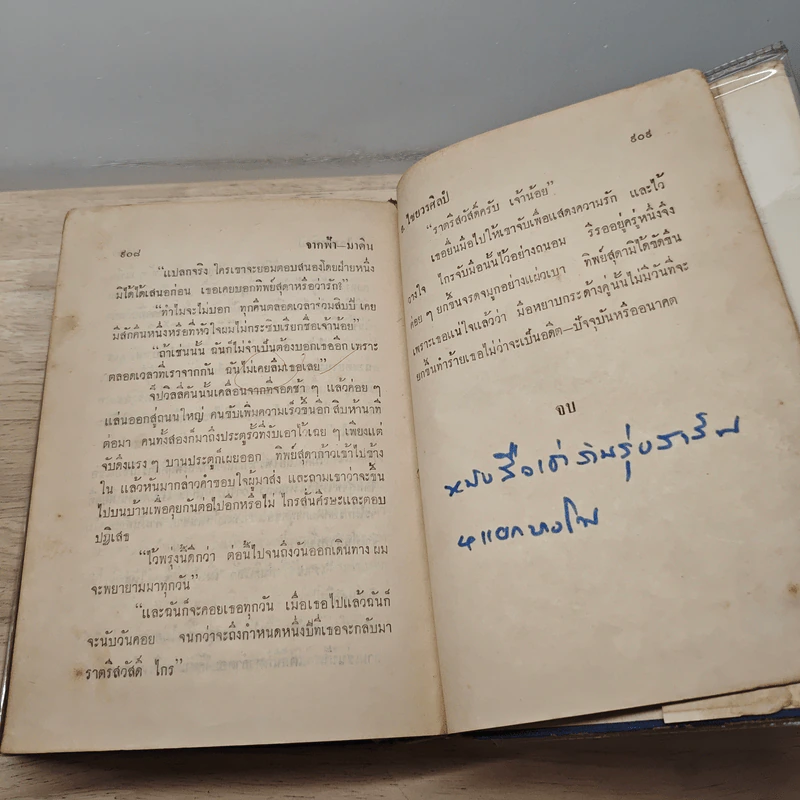 ๙๐๘ จากฟ้า–มาดิน
"แปลกจริง ใครเขาจะยอมตอบสนองโดยฝ่ายหนึ่ง
มิได้ได้เสนอก่อน เธอเคยบอกทิพย์สุดาหรือว่ารัก?"
"ทำไมจะไม่บอก ทุกคืนตลอดเวลาร่วมสิบปี เคย
มีสักคืนหนึ่งหรือที่หัวใจผมไม่กระซิบเรียกชื่อเจ้าน้อย"
"ถ้าเช่นนั้น ฉันก็ไม่จำเป็นต้องบอกเธออีก เพราะ
ตลอดเวลาที่เราจากกัน ฉันไม่เคยลืมเธอเลย"
จี๊ปวิลลี่คันนั้นเคลื่อนจากที่จอดช้า ๆ แล้วค่อย ๆ
แล่นออกสู่ถนนใหญ่ คนขับเพิ่มความเร็วขึ้นอีก สิบห้านาที
ต่อมา คนทั้งสองก็มาถึงประตูรั้วที่งับเอาไว้เฉย ๆ เพียงแต่
จับดึงแรง ๆ บานประตูก็เผยออก ทิพย์สุดาก้าวเข้าไปข้าง
ใน แล้วหันมากล่าวคำขอบใจผู้มาส่ง และถามเขาว่าจะขึ้น
ไปบนบ้านเพื่อคุยกันต่อไปอีกหรือไม่ ไกรสั่นศีรษะและตอบ
ปฏิเสธ
"ไว้พรุ่งนี้ดีกว่า ต่อนี้ไปจนถึงวันออกเดินทาง ผม
จะพยายามมาทุกวัน"
"และฉันก็จะคอยเธอทุกวัน เมื่อเธอไปแล้วฉันก็
จะนับวันคอย จนกว่าจะถึงกำหนดหนึ่งปีที่เธอจะกลับมา
ราตรีสวัสดิ์ ไกร"
๙๐๙
ส. ไชยวรศิลป์
"ราตรีสวัสดิ์ครับ เจ้าน้อย"
เธอยื่นมือไปให้เขาจับเพื่อแสดงความรัก และไว้
วางใจ ไกรจับมือนั้นไว้อย่างถนอม รีรออยู่ครู่หนึ่งจึง
ค่อย ๆ ยกขึ้นจรดจมูกอย่างแผ่วเบา ทิพย์สุดามิได้ขัดขืน
เพราะเธอแน่ใจแล้วว่า มือหยาบกระด้างคู่นั้นไม่มีวันที่จะ
ยกขึ้นทำร้ายเธอไม่ว่าจะเป็นอดีต–ปัจจุบันหรืออนาคต
จบ
หนังสือเช่าร้านรุ่งสาส์น
๔แยกบางโพ